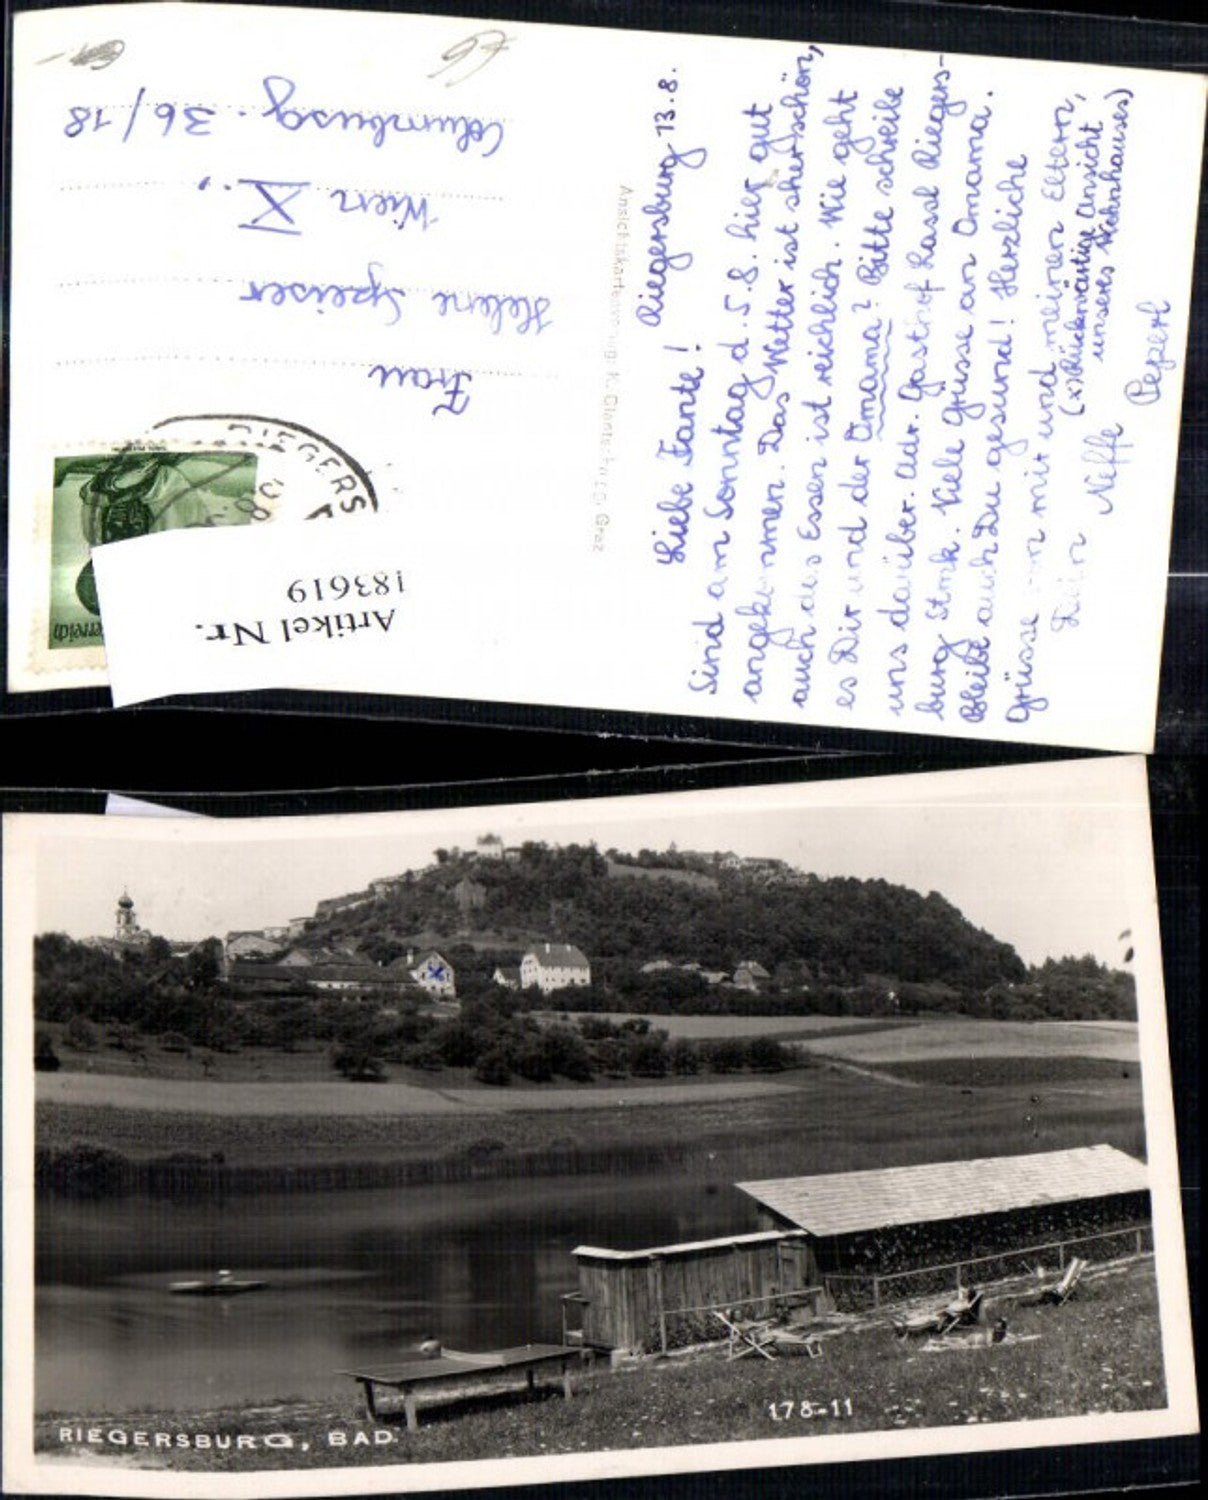 Riegersburg 13.8.
Liebe Tante!
Sind am Sonntag d. 5.8. hier gut
angekommen. Das Wetter ist sher schön,
auch das Essen ist reichlich. Wie geht
es Dir und der Omama? Bitte schreibe
uns darüber. Adr. Gasthof Lassl Riegers-
burg Stmk. Viele Grüsse an Omama.
Bleibe auch Du gesund! Herzliche
Grüsse von mir und meinen Eltern,
Dein Neffe
Peperl
(x) Rückwärtige Ansicht
unseres Wohnhauses)
Ansichtskartenverlag: K. Graz
RIEGERS
Frau
Helene Speiser
Wien X.,
Columbusg. 36/18
erreich
Artikel Nr.
183619
x
178-11
RIEGERSBURG, BAD.